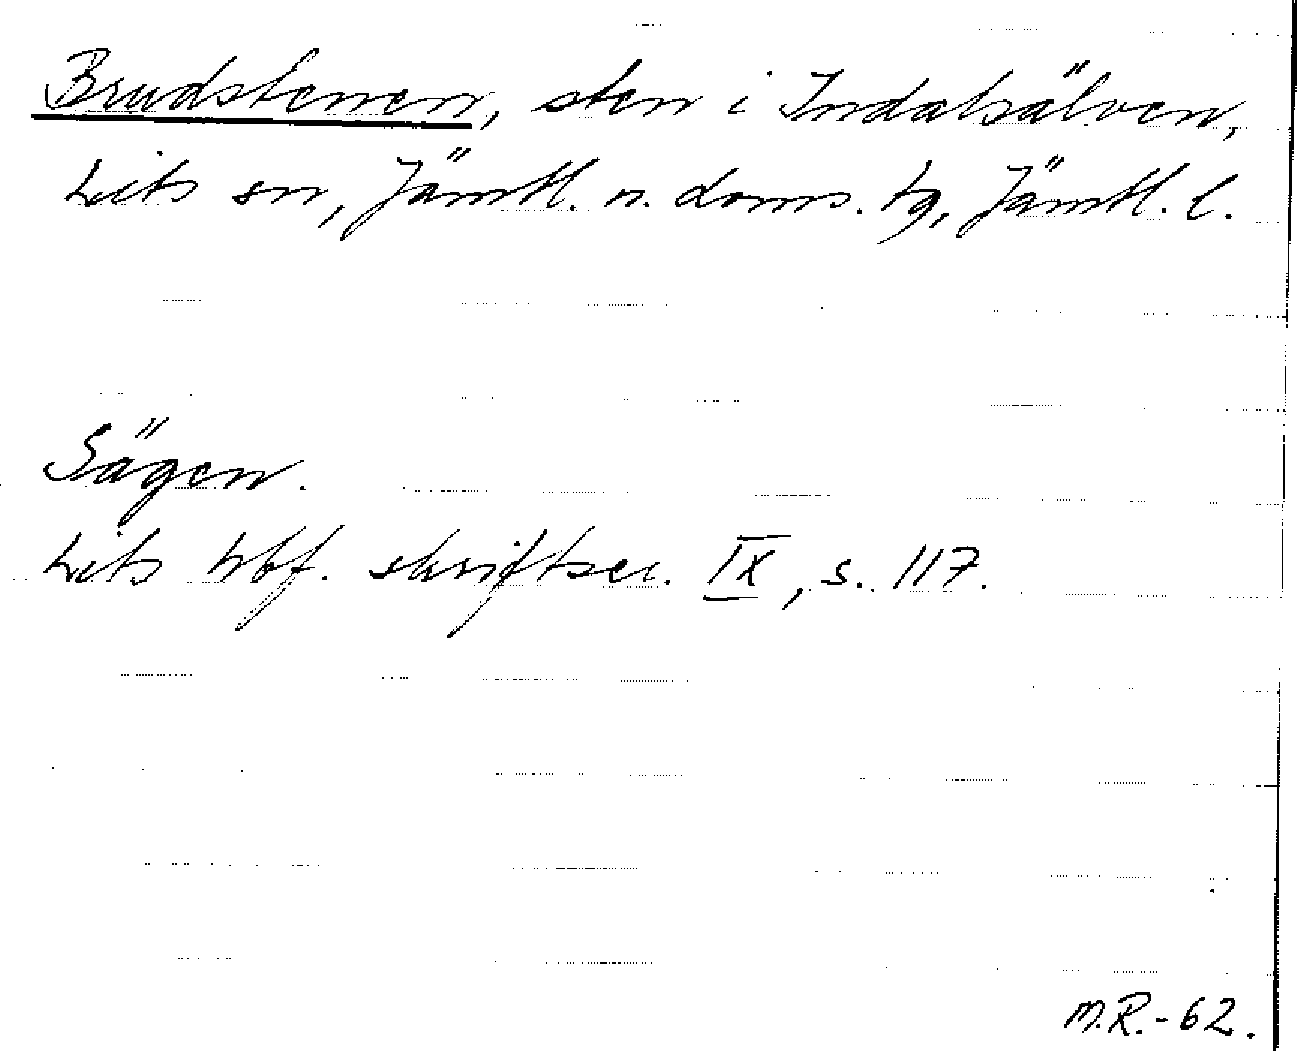 Brudstenen, sten i Indalsälven,
Lits sn, Jämtl. n. doms. tg, Jämtl. l.
Sägen.
Lits hbf. skriftser. IX, s. 117.
M.R.-62.